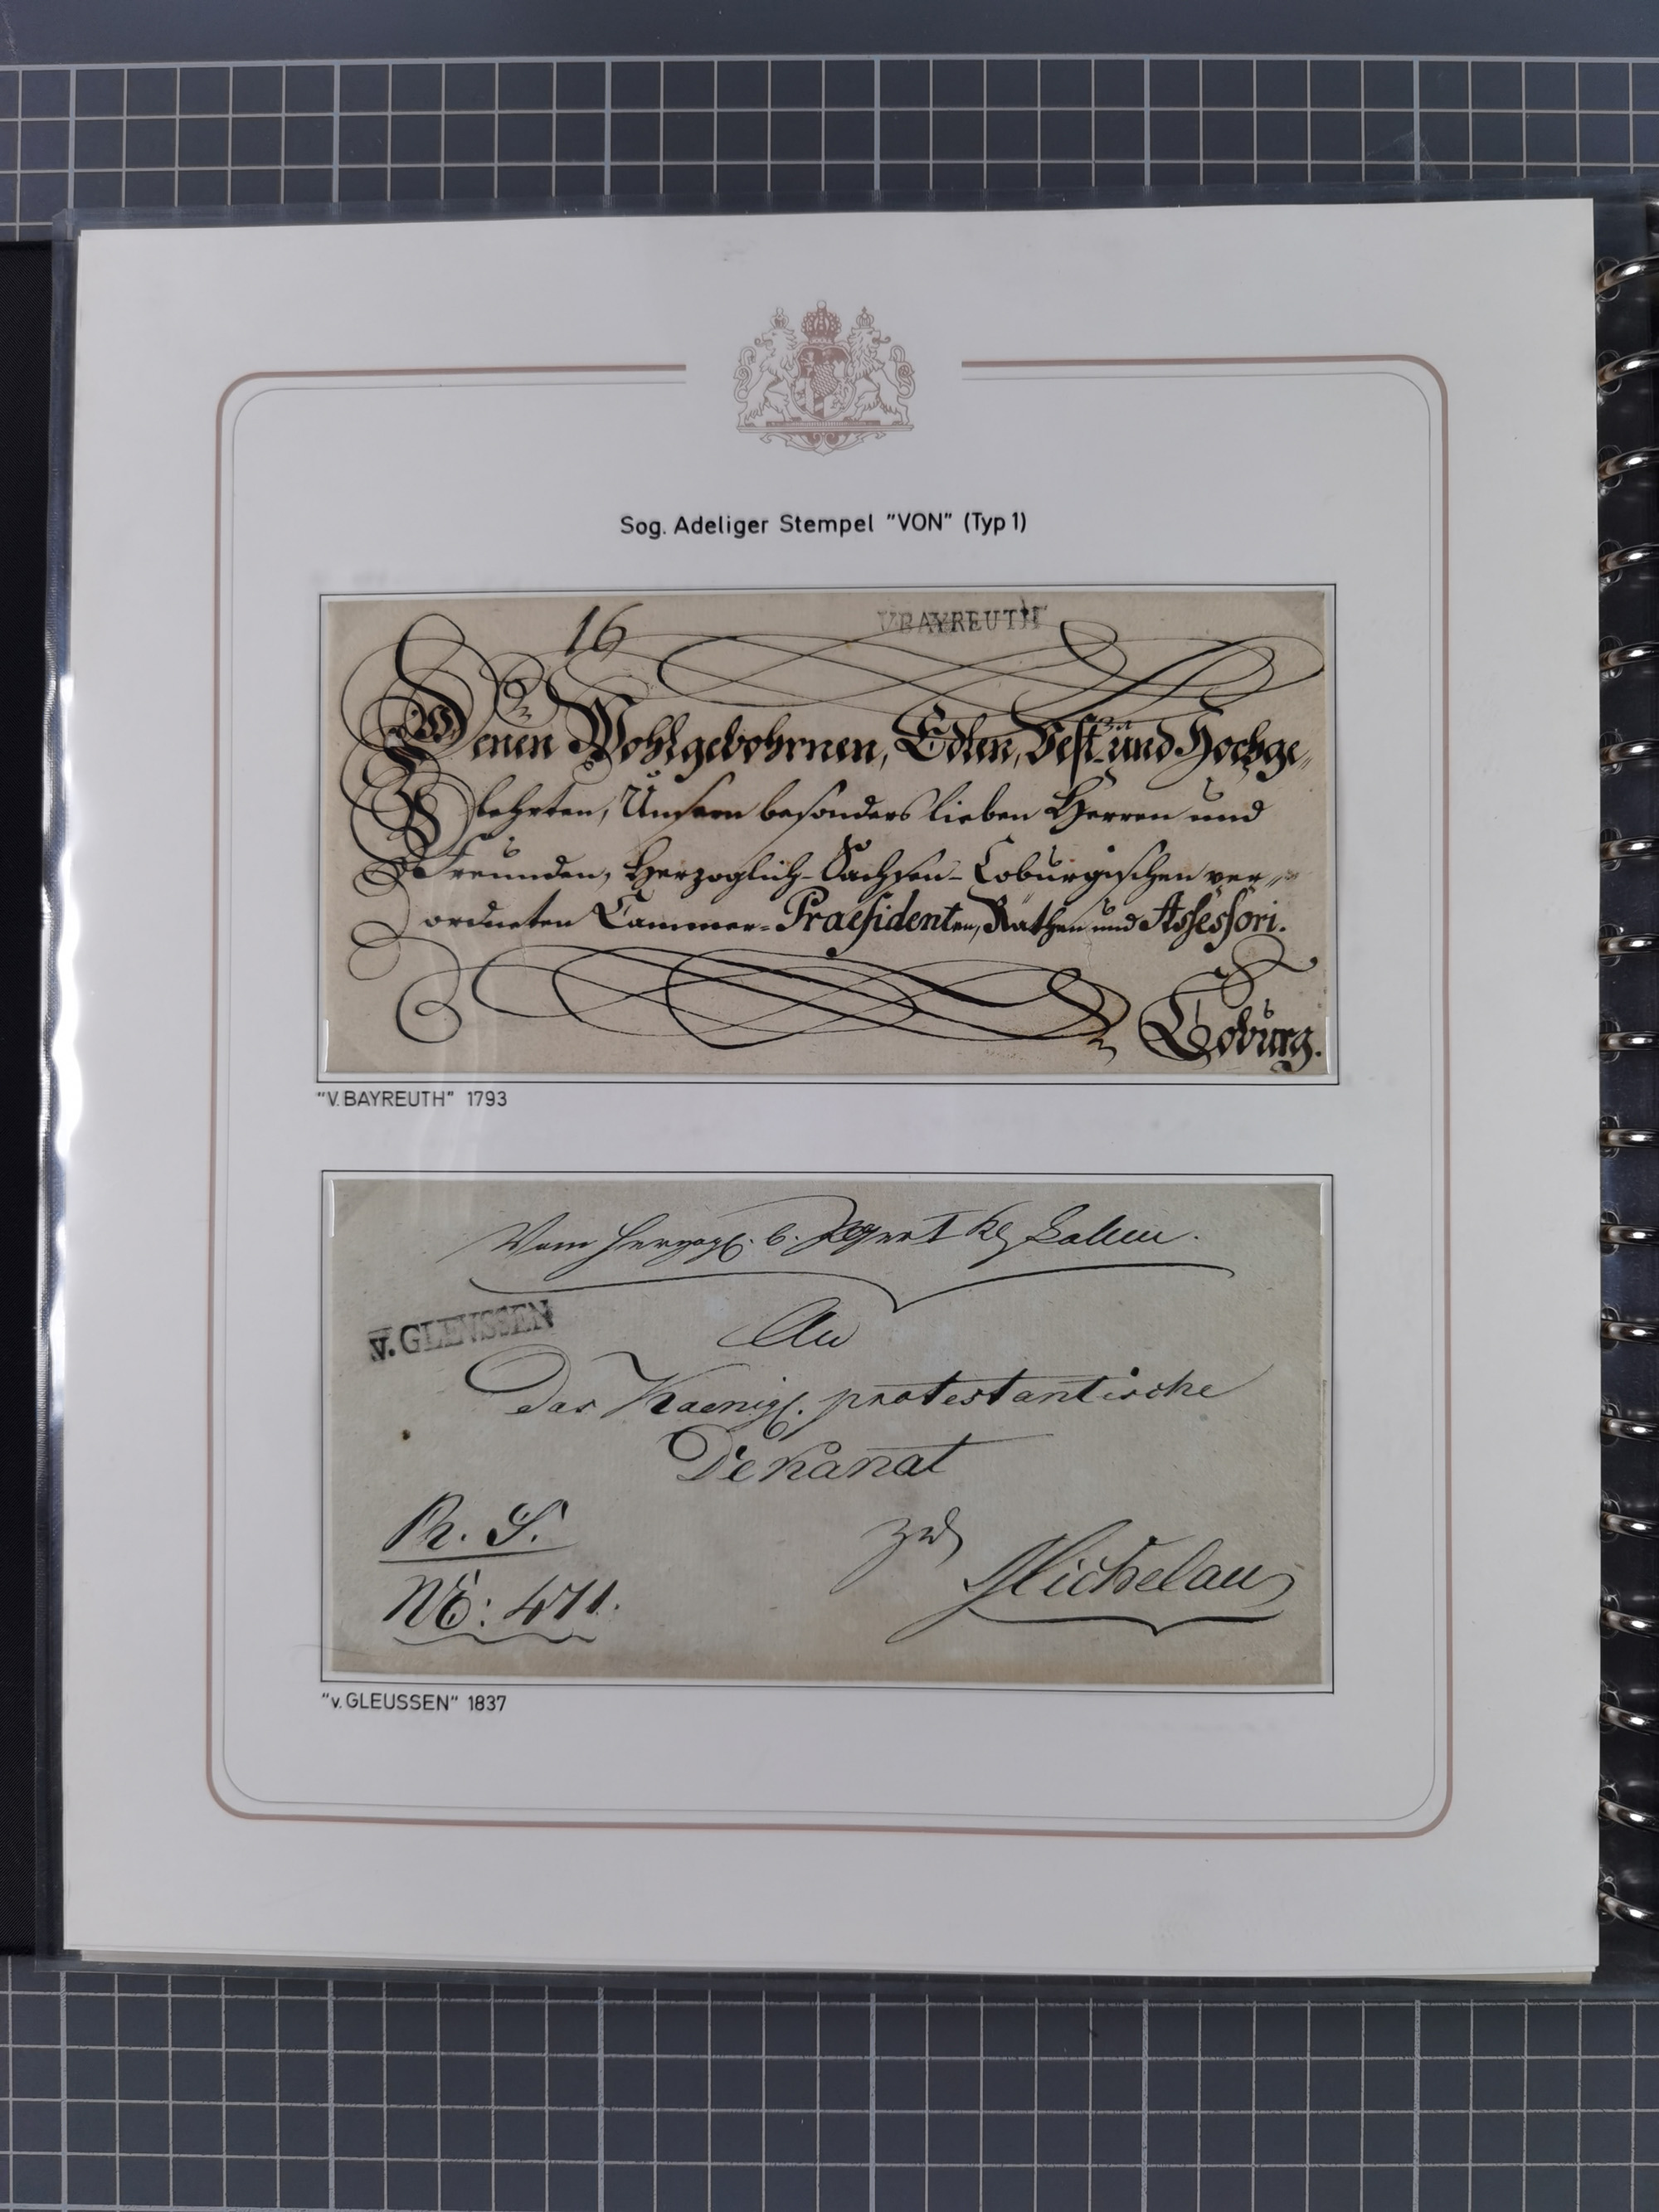 Sog. Adeliger Stempel "VON" (Typ 1)
16
V.BAYREUTH
Denen Wohlgebohrnen, Edlen, Vest- und Hochge„
lehrten, Unsern besonders lieben Herren und
Freunden, Herzoglich-Sachsen-Coburgischen ver„
ordneten Cammer-Praesidenten, Räthen und Assessori.
Coburg.
"V.BAYREUTH" 1793
Vom
v.GLEUSSEN
An
das Koenigl. protestantische
Dekanat
R. S.
zu
Michelau
NE: 471.
"v.GLEUSSEN" 1837